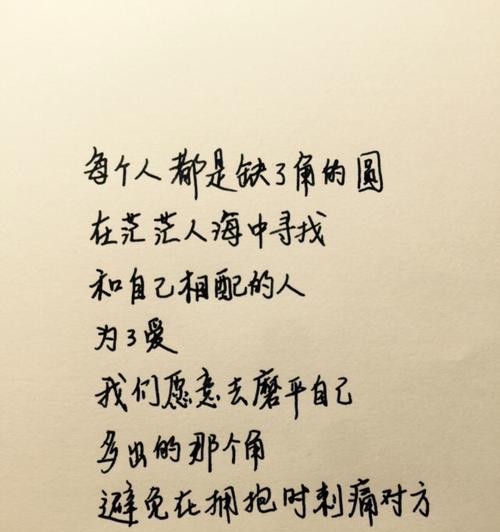 每个人都是缺了角的圆
在茫茫人海中寻找
和自己相配的人
为了爱
我们愿意去磨平自己
多出的那个角
避免在拥抱时刺痛对方